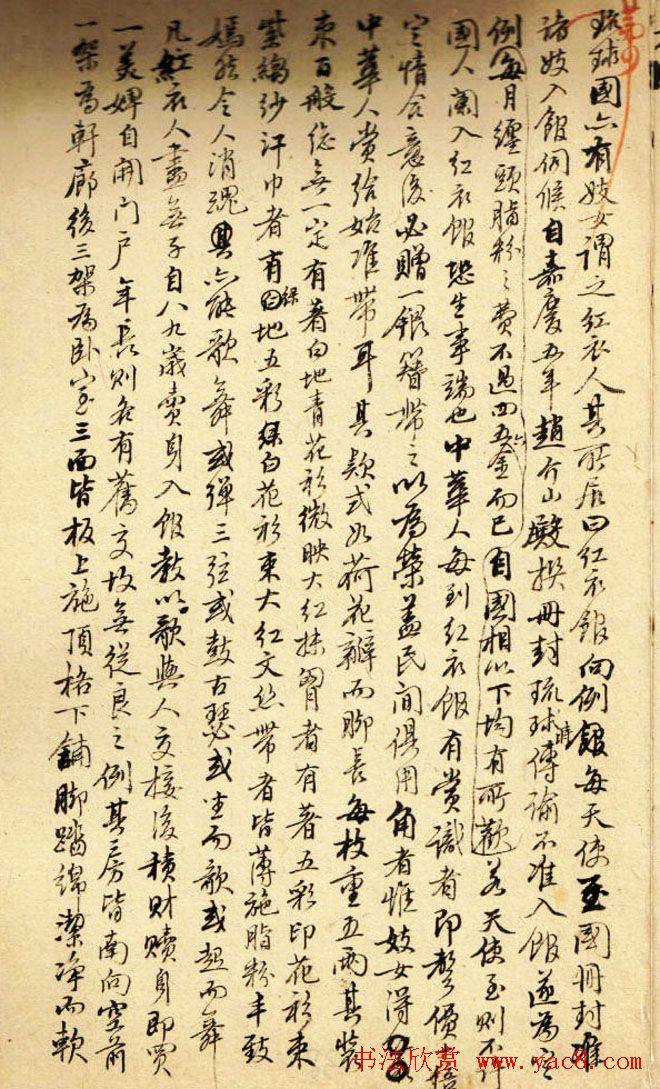 琉球國亦有妓女謂之紅衣人其所居曰紅衣館向例館每天使至國冊封
諸妓入館伺候自嘉慶五年趙介山殿撰冊封琉球時傳諭不准入館遂為定
例每月纏頭脂粉之費不過四五金而已自國相以下均有所歡若天使至則不許
國人闌入紅衣館恐生事端也中華人每到紅衣館有賞識者即聲價倍
定情合意後必贈一銀簪帶之以為榮蓋民間俱用角者惟妓女得
中華人賞給始准帶耳其款式如荷花瓣而腳長每枝重五兩其裝
束百般總無一定有著白地青花衫微映大紅抹胸者有著五彩印花衫束
紫縐紗汗巾者有綠地五彩綠白花衫束大紅文絲帶者皆薄施脂粉丰致
嫣然令人消魂其亦能歌舞或彈三弦或鼓古瑟或坐而歌或起而舞
凡紅衣人盡無子自八九歲賣身入館教以歌與人交接後積財贖身即買
一美婢自開門戶年長則各有舊交故無從良之例其房皆南向空前
一架為軒廊後三架為臥室三面皆板上施頂格下鋪腳踏綿潔淨而軟
书法欣赏 www.yac8.com